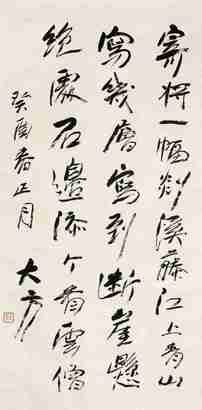 寄將一幅剡溪藤江上青山
寫幾層寫到斷崖懸
絕處石邊添个看雲僧
癸酉春正月
大